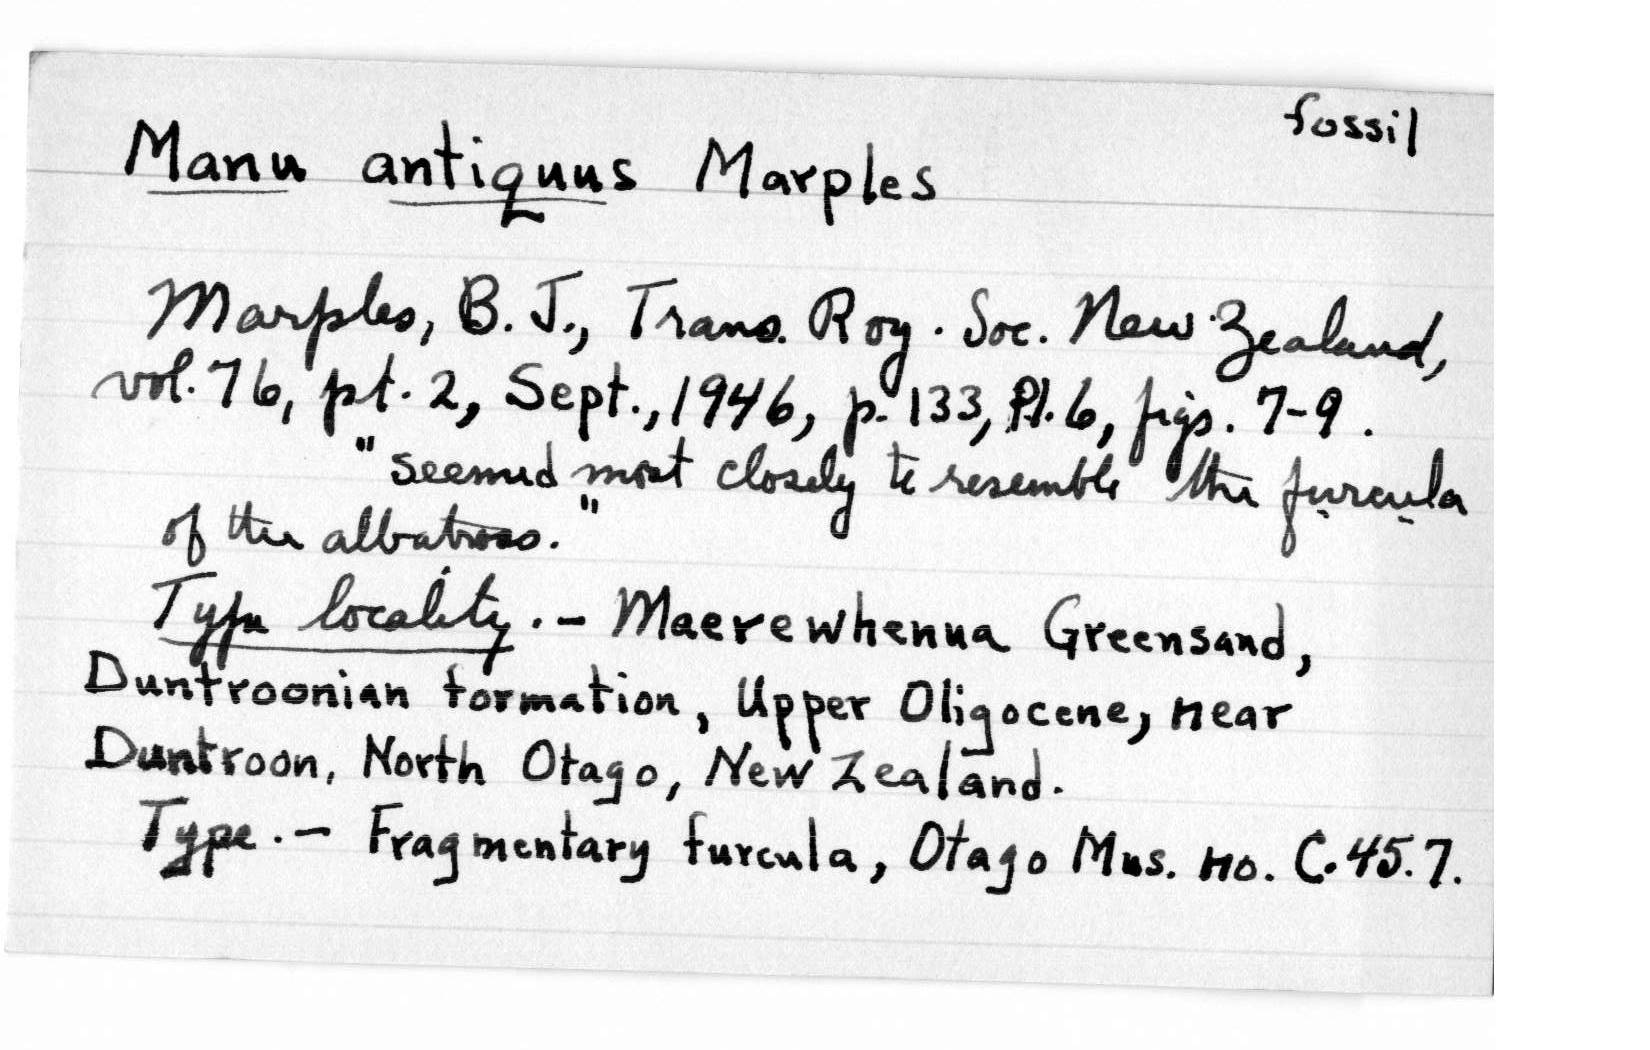 fossil
Manu antiquus Marples
Marples, B. J., Trans. Roy. Soc. New Zealand,
vol. 76, pt. 2, Sept., 1946, p. 133, Pl. 6, figs. 7-9.
"seemed most closely to resemble the furcula
of the albatross."
Type locality.- Maerewhenua Greensand,
Duntroonian formation, Upper Oligocene, near
Duntroon, North Otago, New Zealand.
Type.- Fragmentary furcula, Otago Mus. no. C.45.7.